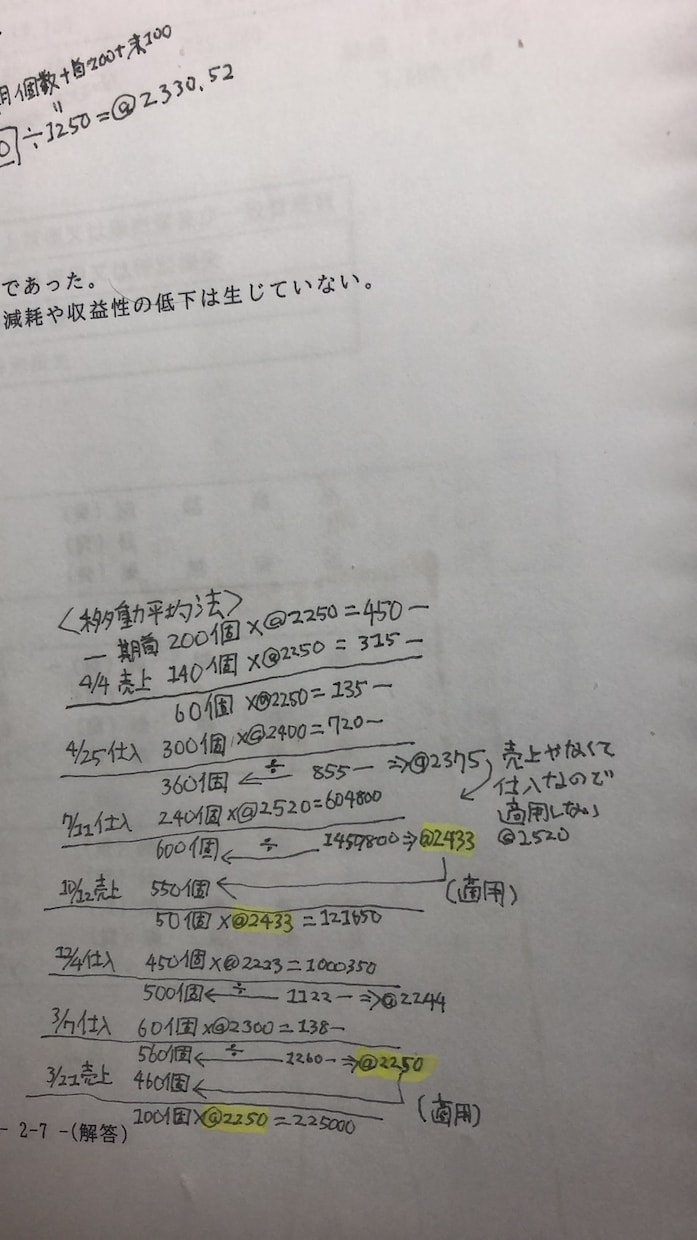 個数+自200+未100
÷1250=@2330.52
であった。
減耗や収益性の低下は生じていない。
〈移動平均法〉
― 期首 200個×@2250=450―
4/4 売上 140個×@2250=315―
60個×@2250=135―
4/25仕入 300個×@2400=720―
360個 ← ÷ 855― ⇒@2375
売上やなくて
仕入なので
適用しない
@2520
7/11仕入 240個×@2520=604800
600個 ← ÷ 1459800⇒@2433
10/12売上 550個
(適用)
50個×@2433=121650
12/4仕入 450個×@2223=1000350
500個 ← ÷ 1122― ⇒@2244
3/7仕入 60個×@2300=138―
560個 ← ÷ 1260― ⇒@2250
3/21売上 460個
(適用)
100個×@2250=225000
- 2-7 -(解答)